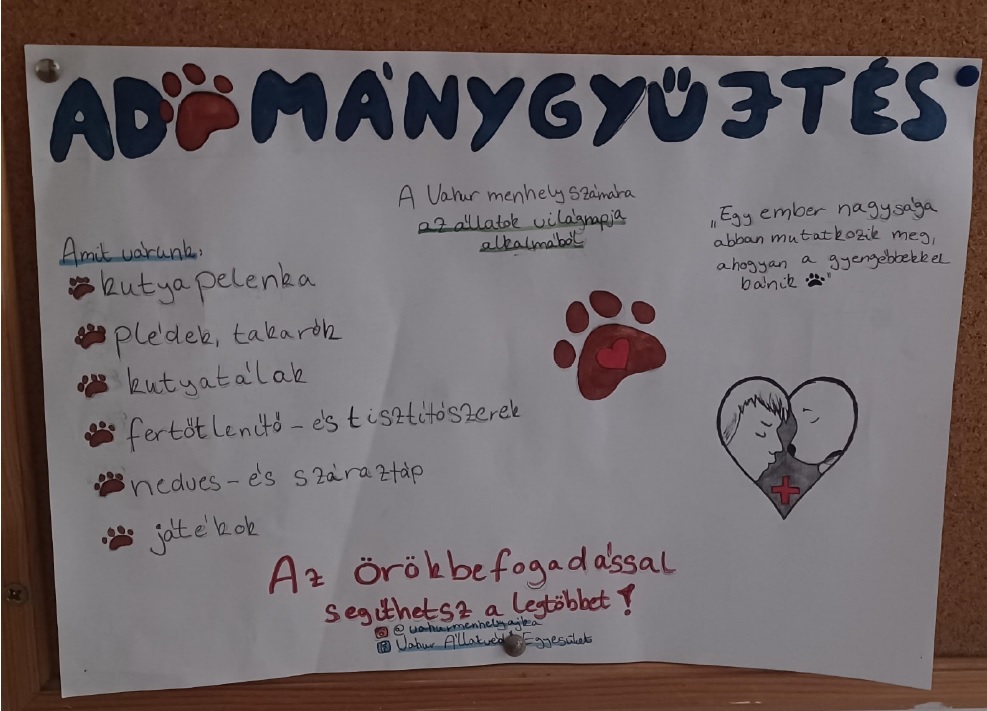 ADOMÁNYGYŰJTÉS
A Vahur menhely számára
az állatok világnapja
alkalmából
„Egy ember nagysága
abban mutatkozik meg,
ahogyan a gyengébbekkel
bánik"
Amit várunk:
kutyapelenka
plédek, takarók
kutyatálak
fertőtlenítő- és tisztítószerek
nedves- és száraztáp
játékok
Az örökbefogadással
segíthetsz a legtöbbet!
@vahurmenhelyajka
Vahur Állatvédő Egyesület